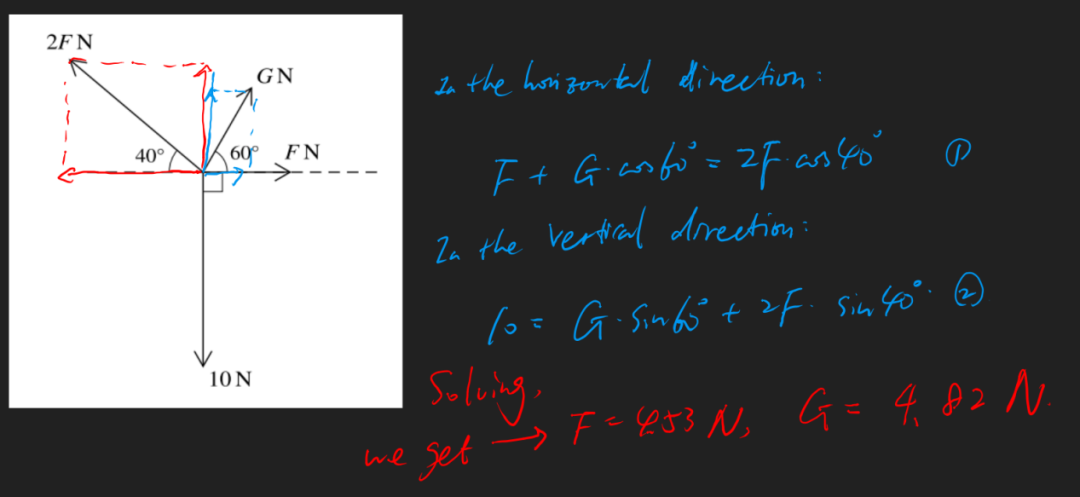 2F N
G N
40°
60°
F N
10 N
In the horizontal direction:
F + G·cos60° = 2F·cos40° ①
In the vertical direction:
10 = G·sin60° + 2F·sin40°. ②
Solving,
we get → F = 4.53 N, G = 4.82 N.